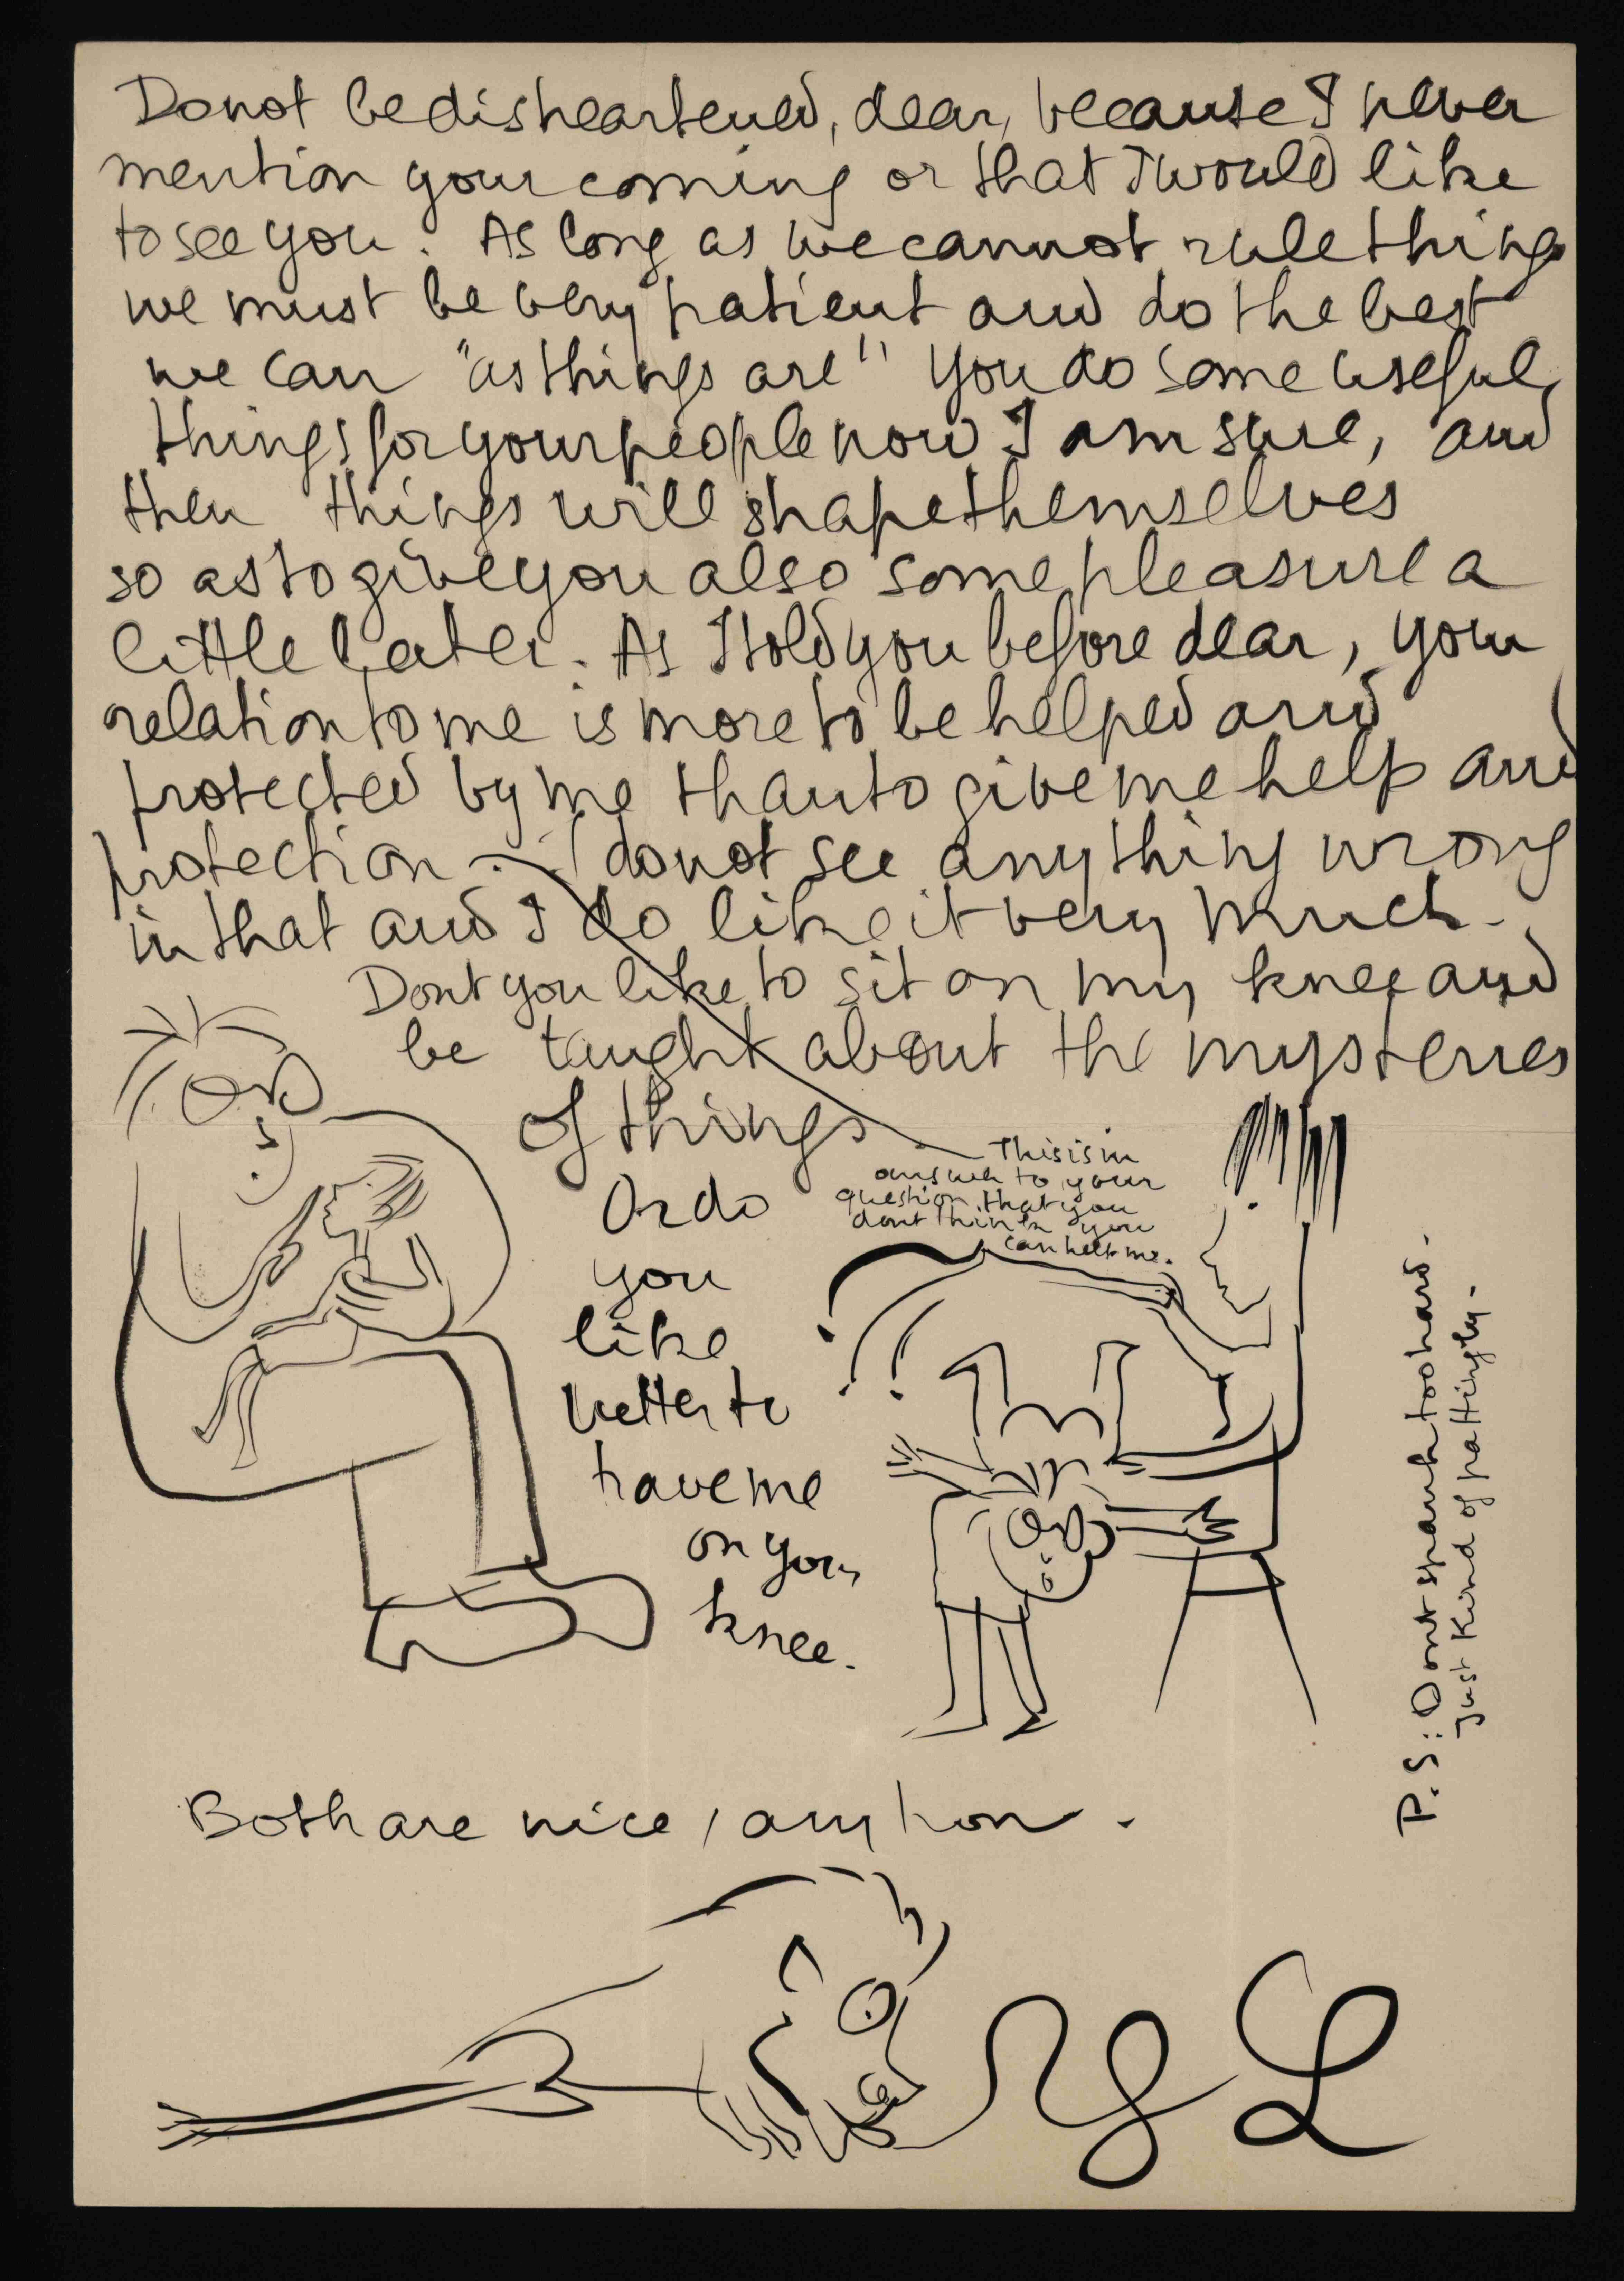 Do not be disheartened, dear, because I never
mention your coming or that I would like
to see you. As long as we cannot rule things
we must be very patient and do the best
we can "as things are" You do some useful
things for your people now I am sure, and
then things will shape themselves
so as to give you also some pleasure a
little later. As I told you before dear, your
relation to me is more to be helped and
protected by me than to give me help and
protection. I do not see anything wrong
in that and I do like it very much.
Dont you like to sit on my knee and
be taught about the mysteries
of things
This is in
answer to your
question that you
dont think you
can help me.
Or do
you
like
better to
have me
on your
knee.
P.S: Dont spank too hard.
just kind of pattingly.
Both are nice, anyhow.
Y L